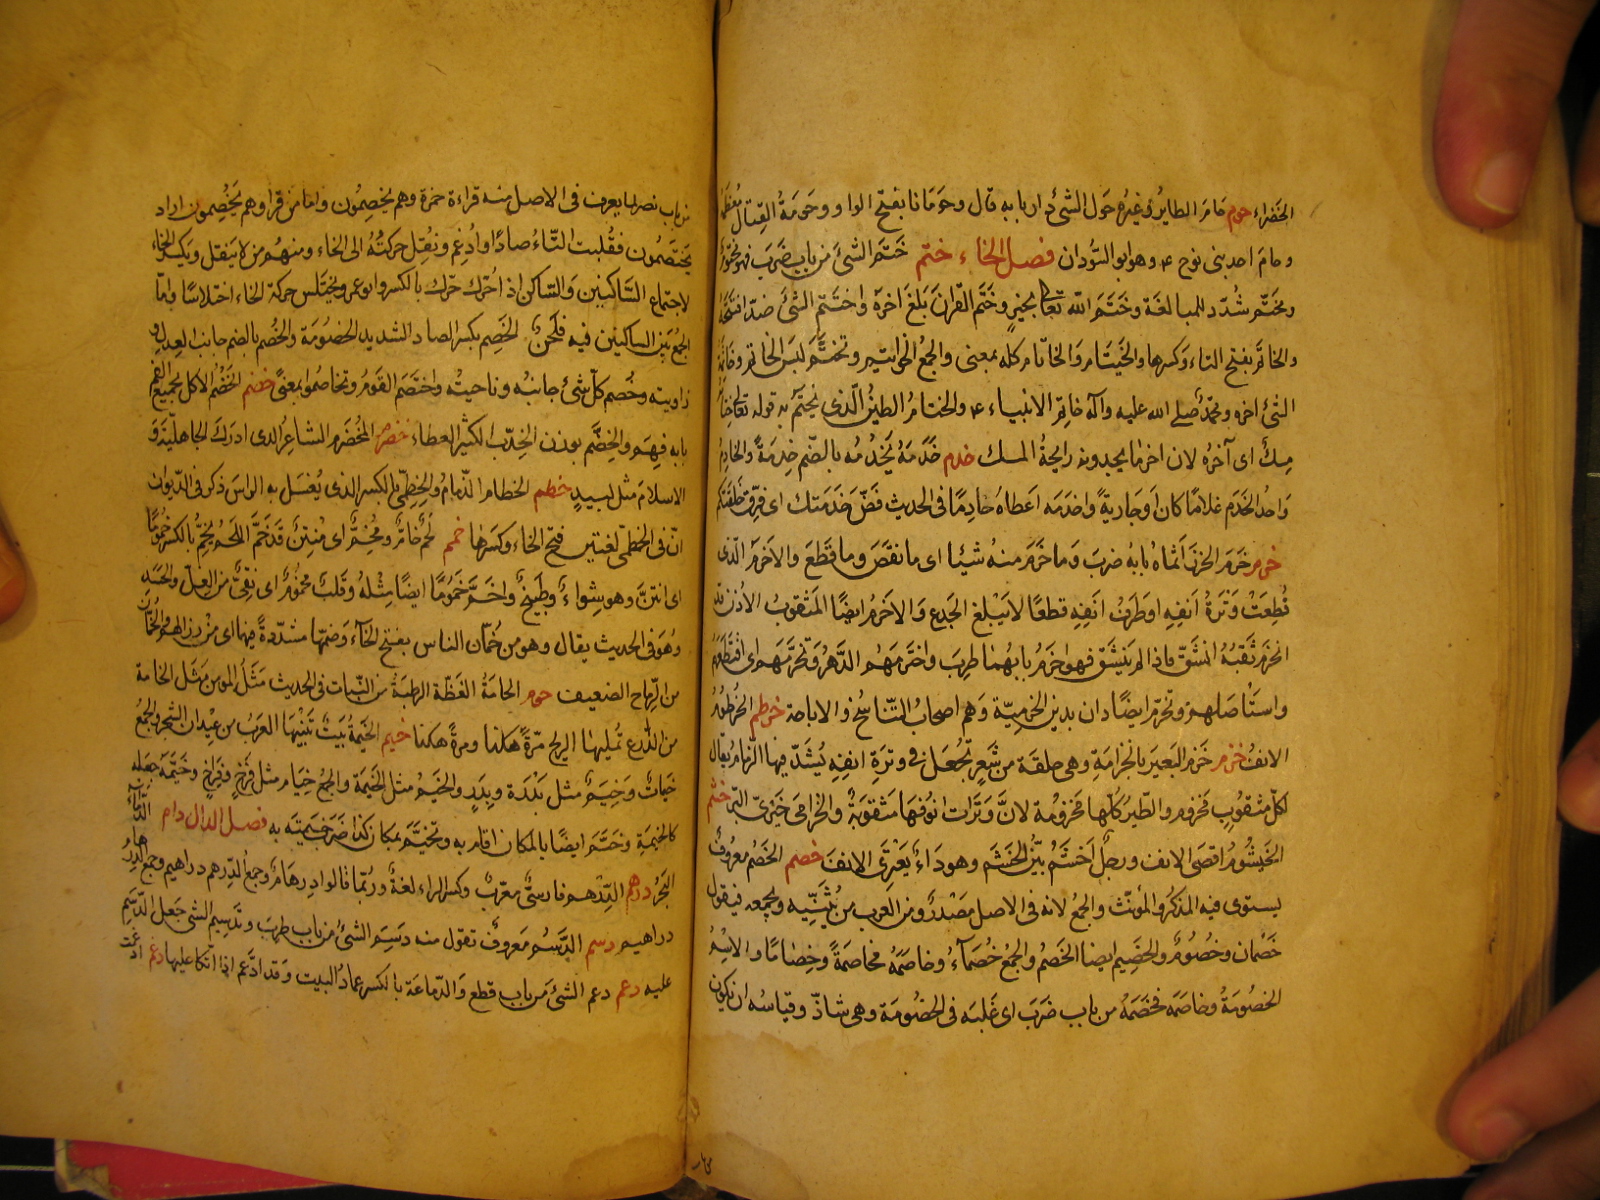 الخضراء حوم حام الطاير وغيره حول الشئ دار بابه قال وحومانا بفتح الواو وحومة القتال معظمه
وحام احد بنى نوح ع وهو ابو السودان فصل الخاء ختم خَتَمَ الشئ من باب ضَرَبَ فهو مختوم
ومختّم شُدّد للمبالغة وخَتَمَ الله تعالى بخيرٍ وختم القرانَ بلغَ اخرَه واختتم الشئَ ضدّ افتتحه
والخاتَم بفتح التاء وكسرها والخيتام والخاتام كله بمعنى والجمع الخواتيم وتختَّم لبس الخاتم وخاتمة
الشئ اخره ومحمّد صلى الله عليه وآله خاتم الانبياء ع والختام الطين الّذى يختم به قوله تعالى ختامه
مسك اى آخره لان اخر ما يجدونه رايحة المسك خدم خَدَمَه يَخْدُمُه بالضم خِدمَةً والخادم
واحد الخدَم غلامًا كان او جاريةً واخدَمَه اعطاه خادِمًا فى الحديث فَضَّ خَدَمَتك اى فرّق
خرم خَرَمَ الخرزَ اثماه بابه ضربَ وما خَرَم منه شيئا اى ما نقصَ وما قطَعَ والاخرم الّذى
قُطِعَتْ وَتَرَةُ اَنفِه او طَرَفُ انفِه قطعًا لا يَبْلغ الجدع والاخرم ايضًا المثقوب الأذن وقد
انخرم ثَقبُهُ انشقّ فاذا لم يَنشَقّ فهو اخزم بابهما طرِبَ واخترمهم الدّهر وتخرّمهم اى اقتطعهم
واستَأصَلهم وتخرّم ايضًا دان بدين الخرميّة وهم اصحاب التّناسخ والاباحة خرطم الخرطوم
الانف خزم خزم البعيرَ بالخزامةِ وهى حلقة من شَعرٍ تُجعَل فى وترَةِ انفِه يُشدّ فيها الزمام يقال
لكل مثقوبٍ مخزوم والطير كلّها مخزومة لانّ وَتَرات انوفها مثقوبةٌ والخزامى خيرىّ البرّ خشم
الخيشوم اقصى الانف ورجلٌ اخشَم بيّن الخشَم وهو داءٌ يعترى الانف خصم الخصم معروفٌ
يستوى فيه المذكر والمؤنث والجمع لانه فى الاصل مصدرٌ ومن العرب من يُثَنّيه ويجمعه فيقول
خصمان وخصومٌ والخصيم ايضا الخصم والجمع خُصَماءُ وخاصَمَه مخاصمَةً وخِصامًا والاسم
الخصومةُ وخاصَمَه فخصَمَه من باب ضرَبَ اى غَلبَه فى الخصومة وهى شاذّ وقياسه ان يكون
من باب نصر لما يعرف فى الاصل منه قراءة حمزة وهم يخصِمُون واما من قرا وهم يَخَصِّمون اراد
يختصمون فقُلبت التّاءُ صادًا وادغم ونُقِل حركتُهُ الى الخاء ومنهم من لا يَنقل ويكسر الخاء
لاجتماع السّاكنين والسّاكن اذا حُرّك حرّك بالكسر وابو عمرو يختلس حركة الخاء اختلاسًا وامّا
الجمع بَيْن الساكنين فيه فلحنٌ الخَصِم بكسر الصاد الشديد الخصومة والخُصم بالضم جانب العِدل و
زاويته وخُصم كلّ شئ جانبُه وناحيته واختصَمَ القوم وتخاصموا بمعنًى خضم الخَضْم الاكل بجميع الفم
بابه فهِمَ والخِضَمّ بوزن الخِدَبّ الكثير العطاء خضرم المخضرَم الشاعر الذى ادرَك الجاهليّةَ و
الاسلام مثل لبيدٍ خطم الخطام الزمام والخِطمِىّ بالكسر الذى يُغسَل به الراسَ ذكر فى الدّيوان
انّ فى الخطمى لغتين فتح الخاء وكسرَها خمم لحم خامٌّ ومُخِمٌّ اى مُنتِنٌ قد خَمَّ اللحم يخِمُّ بالكسر خُمُومًا
اى انتنَ وهو شِواءٌ وطبيخٌ واخَمَّ خُمُومًا ايضًا مِثلهُ وقلبٌ مخموم اى نقىٌّ من الغلّ والحسد
وهُو فى الحديث يقال وهو من خُمّان الناس بفتح الخاء وضمّها مشدّدةً فيهما اى من رذالهم والخُمّان
من الرّماح الضعيف خوم الخامَةُ الغَضّة الرطبَةُ من النّبات فى الحديث مَثَلُ المومن مَثَل الخامة
من الزّرع تُميلها الريح مرّةً هكذا ومرةً هكذا خيم الخيمةُ بيتٌ تَبنيها العرَبُ من عيدان الشجر والجمع
خَيماتٌ وخِيَمٌ مثل بَدْرَة وبِدَرٍ والخَيْم مثل الخَيمة والجمع خِيام مثل فَرْخٍ وفِراخٍ وخيَّمَه جعله
كالخيمةِ وخَيّمَ ايضًا بالمكان اقام به وتخيّم بمكان كذا ضَرَبَ خيمتَه به فصل الدال دام الدّاماء
البَحْرُ درهم الدِّرْهم فارسىٌّ معرّبٌ وكسر الهاء لغةٌ وربّما قالوا دِرهامٌ وجمع الدّرهم دراهم وجمع الدرهام
دراهيم دسم الدّسم معروفٌ تقول منه دسِمَ الشئ من باب طرِبَ وتدسيم الشئ جعل الدّسَم
عليه دعم دعم الشئ من باب قطع والدِّعامَة بالكسر عماد البيت وقد ادَّعم اذا اتّكا عليها دغم ادغمت